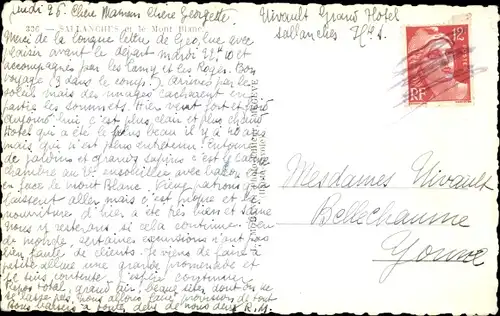 Jeudi 26. Chère Maman Chère Georgette.
336 - SALLANCHES et le Mont Blanc
Merci de la longue lettre de
plaisir avant le départ mardi 22h10 et
accompagnés par les Lamy et les Royes. Bon
voyage (3 dans le comp.) arrivés par le
soleil mais des nuages cachaient en
partie les sommets. Hier vent fort et froid
aujourd'hui c'est plus clair et plus chaud
Hôtel qui a été le plus beau il y a 40 ans
mais qui n'est plus entretenu. Entouré
de jardins et grands sapins c'est g
chambre au ensoleillée avec balcon
en face le Mont Blanc. patrons qui
laissent aller mais c'est propre et les
nourriture d'hier a été très bien et saine
nous y resterons si cela continue.
de monde, certaines excursions n'ont pas
lieu faute de clients. Je viens de faire à
petits une grande promenade et
je suis contente. J'espère continuer
Repos total, grand air, beaux sites dont on ne
se lasse pas, nous allons faire provision de tout
Bons baisers à toutes deux de nous deux R.M.
Vivault Grand Hotel
Sallanches Hte S.
12F
RF
MEGEVE
Mesdames Vivault
Bellechaume
Yonne